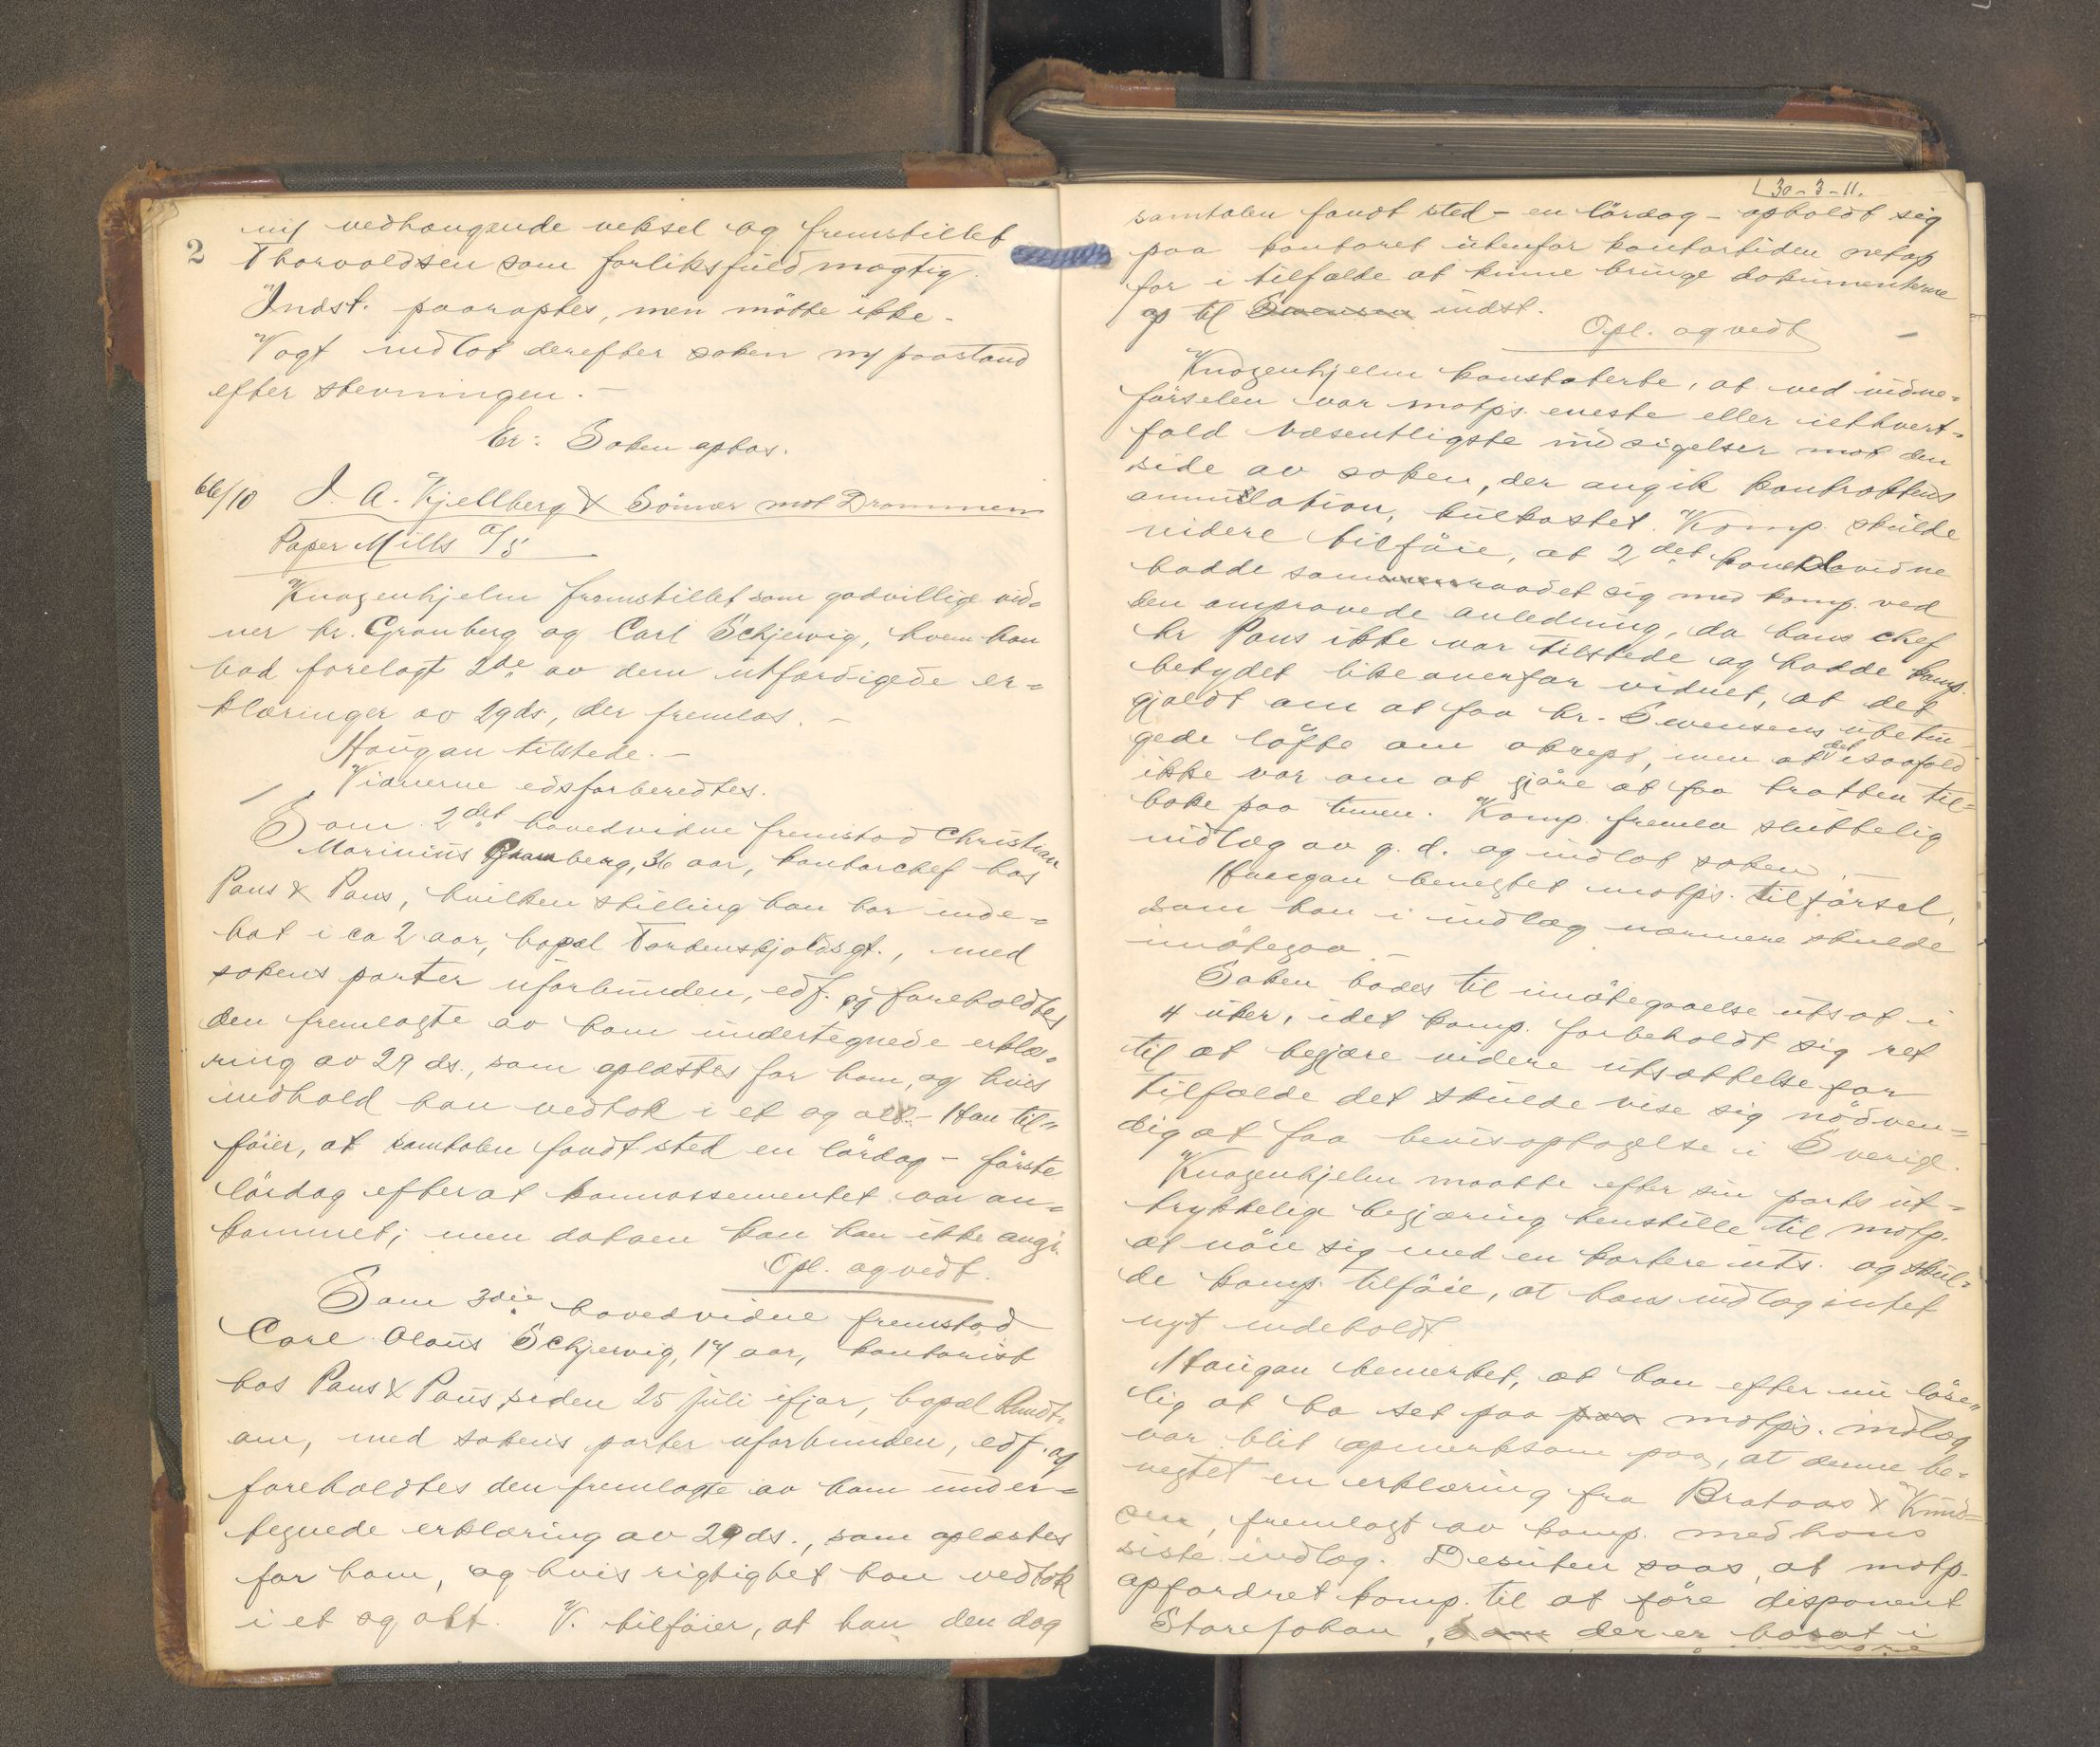 2
m/ vedhængende veksel og fremstillet
Thorvaldsen som forliksfuldmægtig.
Indst. paaraaptes, men mötte ikke.
Vogt indlot derefter saken m/ paastand
efter stevningen. –
Er: Saken optas.
66/10 J. A. Kjellberg & Sönner mot Drammen
Paper Mills A/S
Knagenhjelm fremstillet som godvillige vid-
ner hr. Granberg og Carl Schjervig, hvem han
had forelagt 2de av dem utfærdigede er-
klæringer av 29 ds., der fremlas. –
Haugan tilstede. –
Vidnerne edsforberedtes.
Som 2det hovedvidne fremstod Christian
Marinius Granberg, 36 aar, kontorchef hos
Paus & Paus, hvilken stilling han har inde-
hat i ca 2 aar, bopæl Tordenskjoldsgt., med
sakens parter uforbunden, edf. og foreholdtes
den fremlagte av ham undertegnede erklæ-
ring av 29 ds., som oplæstes for ham, og hvis
indhold han vedtok i et og alt. – Han til-
föier, at samtalen fandt sted en lördag – förste
lördag efterat konnossementet var an-
kommet; men datoen kan han ikke angi.
Opl. og vedt.
Som 3die hovedvidne fremstod
Carl Olaus Schjervig, 17 aar, kontorist
hos Paus & Paus siden 25 juli ifjor, bopæl Rundt-
om, med sakens parter uforbunden, edf. og
foreholdtes den fremlagte av ham under-
tegnede erklæring av 29 ds., som oplæstes
for ham, og hvis rigtighet han vedtok
i et og alt. V. tilföier, at han den dag
30-3-11.
samtalen fandt sted – en lördag – opholdt sig
paa kontoret utenfor kontortiden netop
for i tilfælde at kunne bringe dokumenterne
op til Swensen indst.
Opl. og vedt –
Knagenhjelm konstaterte, at ved vidne-
förselen var motp's. eneste eller iethvert-
fald væsentligste indsigelser mot den
side av saken, der angik kontraktens
annulation, kulkastet. Komp. skulde
videre tilföie, at 2det hovedvidne
hadde samraadet sig med komp. ved
den omprovede anledning, da hans chef
hr Paus ikke var tilstede og hadde komp.
betydet likeoverfor vidnet, at det
gjaldt om at faa hr. Swensens ubetin-
gede löfte om aksept, men at det isaafald
ikke var om at gjöre at faa tratten til-
bake paa timen. Komp. fremla sluttelig
indlæg av g. d. og indlot saken. –
Haugan benegtet motp's. tilförsel,
som han i indlæg nærmere skulde
imötegaa –
Saken bades til imötegaaelse utsat i
4 uker, idet komp. forbeholdt sig ret
til at begjære videre utsættelse for
tilfælde det skulde vise sig nödven-
dig at faa bevisoptagelse i Sverige.
Knagenhjelm maatte efter sin parts ut-
trykkelige begjæring henstille til motp.
at nöie sig med en kortere uts. og skul-
de komp. tilföie, at hans indlæg intet
nyt indeholdt
Haugan bemerket, at han efter nu löse-
lig at ha set paa paa motp's. indlæg
var blit opmerksom paa, at denne be-
negtet en erklæring fra Brataas & Knud-
sen, fremlagt av komp. med hans
siste indlæg. Desuten saas, at motp.
opfordret komp. til at före disponent
Storejohan, som der er bosat i